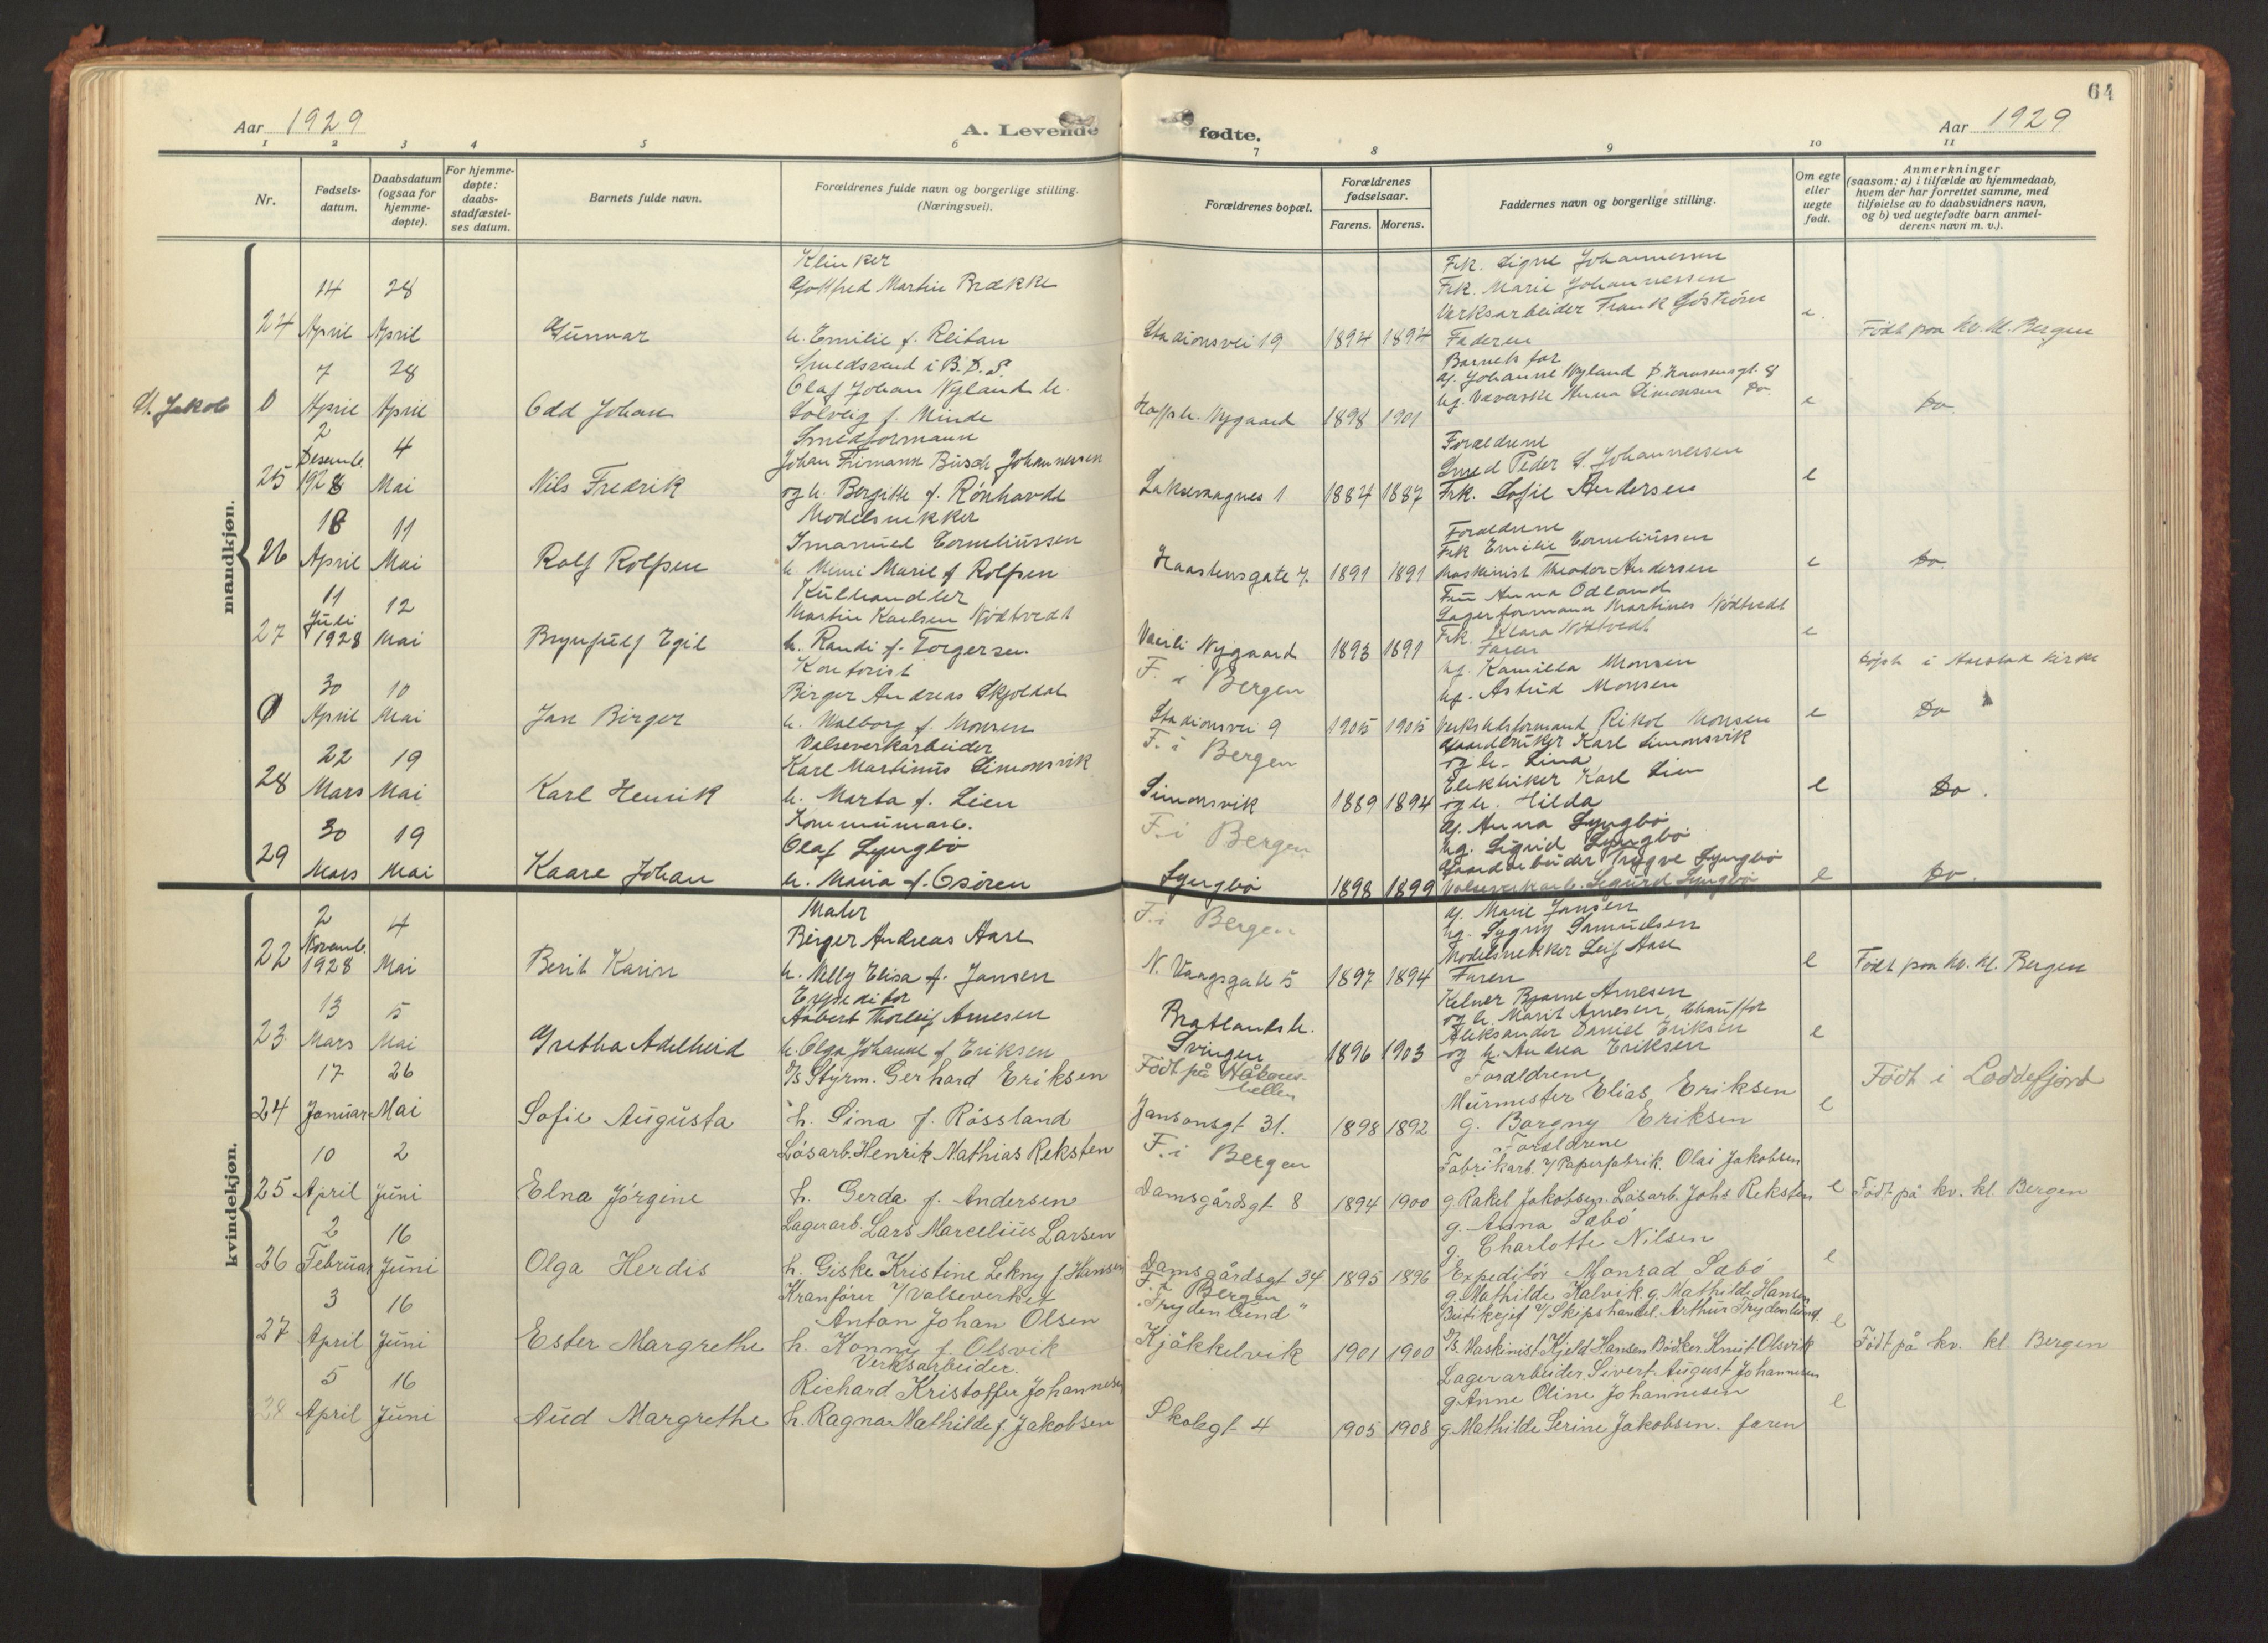 64
Aar 1929
A. Levende fødte.
Aar 1929
1 2 3 4 5 6 7 8 9 10 11
Nr.
Fødsels-
datum.
Daabsdatum
(ogsaa for
hjemme-
døpte).
For hjemme-
døpte:
daabs-
stadfæstel-
ses datum.
Barnets fulde navn.
Forældrenes fulde navn og borgerlige stilling.
(Næringsvei).
Forældrenes bopæl.
Forældrenes
fødselsaar.
Farens. Morens.
Faddernes navn og borgerlige stilling.
Om egte
eller
uegte
født.
Anmerkninger
(saasom: a) i tilfælde av hjemmedaab,
hvem der har forrettet samme, med
tilføielse av to daabsvidners navn,
og b) ved uegtefødte barn anmel-
derens navn m. v.).
mandkjøn.
24
14
April
28
April
Gunnar
Klinker
Gottfred Martin Brække
h. Emilie f. Reitan
Stadionsvei 19
1894 1894
Frk. Signe Johannessen
Frk. Marie Johannessen
Verksarbeider Frank Sjöström
Faderen
e.
Født paa kv. kl. Bergen
St. Jakob
0
7
April
28
April
Odd Johan
Smedsvend i B.D.S.
Olaf Johan Nyland h.
Solveig f. Minde
Nygaard
1898 1901
Barnets far
g. Johanne Nyland
ug. Væverske Anna Simonsen Do.
e
Do
25
2
Desemb.
1928
4
Mai
Nils Fredrik
Smedformann
Johan Frimann Busch Johannessen
og h. Bergitte f. Rönhovde
Laksevagnes 1
1884 1887
Forældrene
Smed Peder S. Johannessen
Frk. Sofie Andersen
e
26
18
April
11
Mai
Rolf Rolfsen
Modelsnekker
Imanuel Corneliussen
h. Mimi Marie f Rolfsen
Haastensgate 7.
1891 1891
Forældrene
Frk Emilie Corneliussen
Maskinist Theodor Andersen
e
Do.
27
11
Juli
1928
12
Mai
Brynjulf Egil
Kulhandler
Martin Karlsen Nödtvedt
h. Randi f. Torgersen.
Nygaard
1893 1891
Fru Anna Odland
Lagerformann Martines Nödtvedt
Frk. Klara Nödtvedt
Faren
e
Døpt i Aarstad kirke
0
30
April
10
Mai
Jan Birger
Kontorist
Birger Andreas Skjoldal
h. Walborg f. Monsen
F. i Bergen
Stadionsvei 9
1905 1905
ug. Kamilla Monsen
ug. Astrid Monsen
Verkstedsformand Rikol Monsen
e
Do
28
22
Mars
19
Mai
Karl Henrik
Valseverkarbeider
Karl Martinus Simonsvik
h. Marta f. Lien
F. i Bergen
Simonsvik
1889 1894
Gaardbruker Karl Simonsvik
og h. Lina
Elektriker Karl Lien
og h. Hilda
e
Do.
29
30
Mars
19
Mai
Kaare Johan
Kommunearb.
Olaf Lyngbö
h. Maria f. Osören
F. i Bergen
Lyngbö
1898 1899
g. Anna Lyngbö
ug. Sigrid Lyngbö
Gaardarbeider Trygve Lyngbö
Valseverkarb. Sigurd Lyngbö
e
Do.
kvindekjøn.
22
2
Novemb.
1928
4
Mai
Berit Karin
Maler
Birger Andreas Aase
h. Nelly Elisa f. Jansen
F. i Bergen
N. Vaagsgate 5
1897 1894
g. Marie Jansen
ug. Sygny Samuelsen
Modelsnekker Leif Aase
Faren
e
Født paa kv. kl. Bergen
23.
13
Mars
5
Mai
Gretha Adelheid
Expeditør
Aabert Thorleif Arnesen
h. Olga Johanne f Eriksen
Bratlandsh.
Svingen
1896 1903
Kelner Bjarne Arnesen
og h. Marit Arnesen, Chauffør
Aleksander Daniel Eriksen
og h. Andrea Eriksen
e
24
17
Januar
26
Mai
Sofie Augusta
D/S Styrm. Gerhard Eriksen
h. Sina f. Røssland
Født på Håkons-
hellen
Jansonsgt 31.
1898 1892
Foraldrene
Murmester Elias Eriksen
g. Borgny Eriksen
e
Født i Loddefjord
25
10
April
2
Juni
Elna Jørgine
Løsarb. Henrik Mathias Reksten
h. Gerda f. Andersen
F. i Bergen
Damsgårdsgt 8
1894 1900
Foraldrene
Fabrikarb. v/ Paperfabrik. Olai Jakobsen
g. Rakel Jakobsen. Løsarb. Johs Reksten
g. Anna Sabø
e
Født på kv. kl. Bergen
26
2
Februar
16
Juni
Olga Herdis
Lagerarb. Lars Marcelius Larsen
h. Giske Kristine Lekny f. Hansen
Damsgårdsgt 34
1895 1896
g. Charlotte Nilsen
Expeditør Monrad Sabø
e
27
3
April
16
Juni
Ester Margrethe
Kranfører v/ Valseverket
Anton Johan Olsen
h. Konny f. Olsvik
F. i Bergen
"Frydenlund"
Kjøkkelvik
1901 1900
g. Mathilde Kalvik. g. Mathilde Hansen
Butikejef v/ Skipshandel. Arthur Frydenlund.
D/S. Maskinist Kjeld Hansen Bødker Knut Olsvik
e
Født på kv. kl. Bergen
28
5
April
16
Juni
Aud Margrethe
Verksarbeider.
Richard Kristoffer Johannesen
h. Ragna Mathilde f. Jakobsen
Skolegt 4
1905 1908
Lagerarbeider Sivert August Johannesen
g Anne Oline Johannesen
g. Mathilde Serine Jakobsen. faren
e